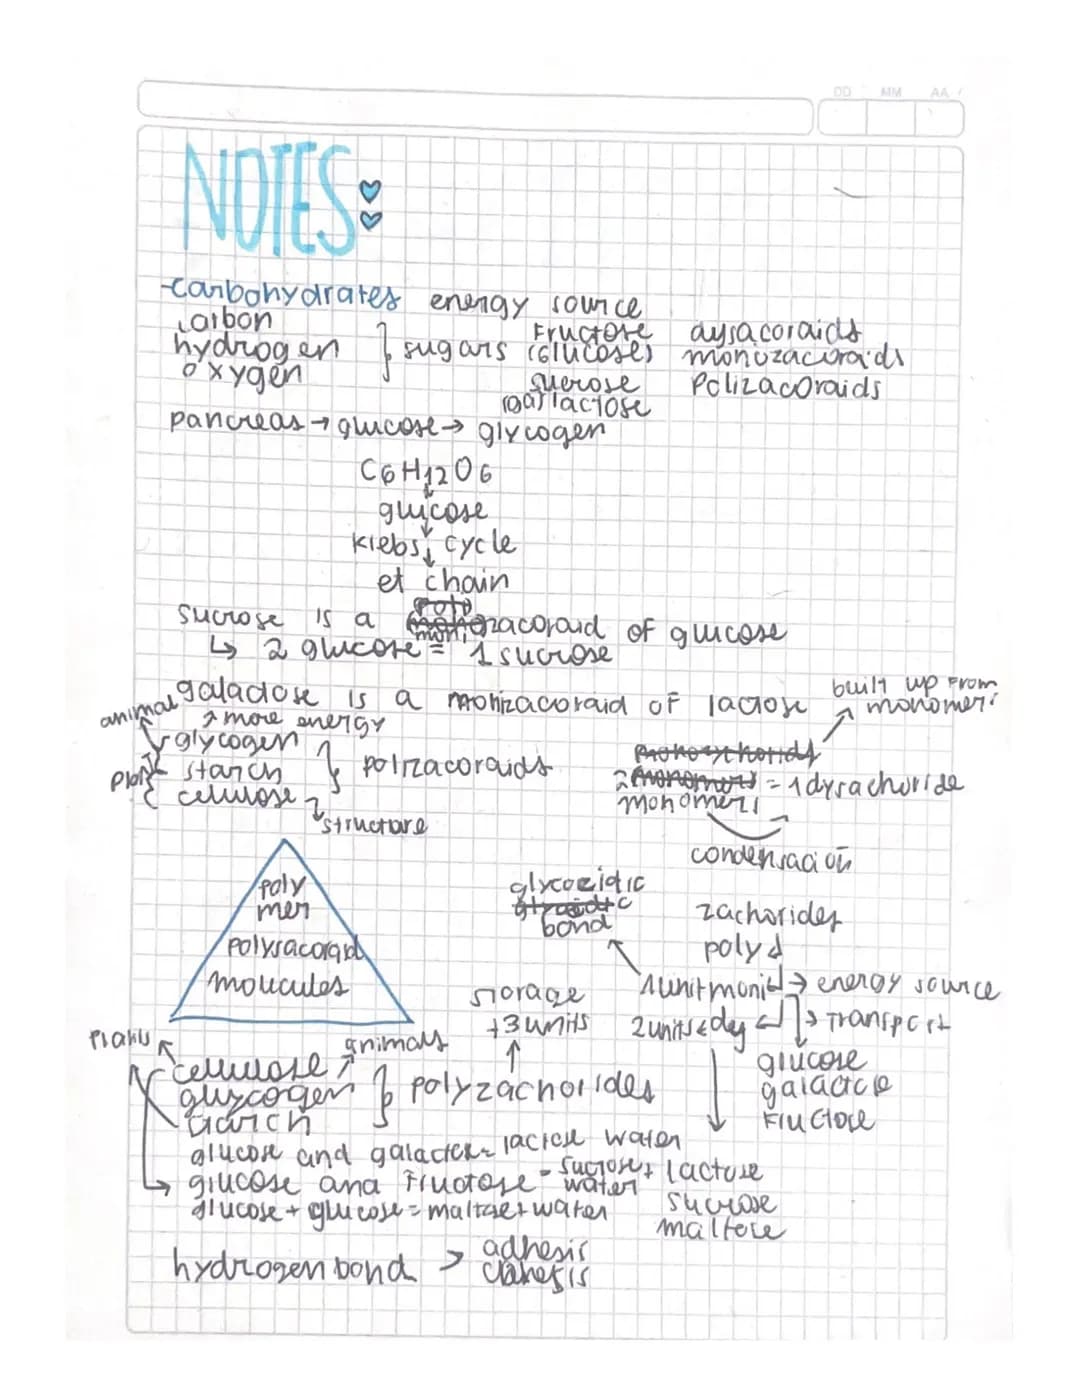 DD MM AA
NOTES:
-carbohydrates energy source
carbon
hydrogen
oxygen
} sugars
Fructose
(Glucose)
sucrose
lactose
aysacoraids
monozacoraids
Polizacoraids
pancreas → glucose → glycogen
C6H12O6
↓
glucose
↓
Krebs cycle
↓
et chain
sucrose is a zacoraid of glucose
↳ 2 glucose = 1 sucrose
galactose is a monizacoraid of lactose
animal
↗ more energy
glycogen
starch
cellulose
} polizacoraids
structure
built up From
monomers
2 = 1 dysachoride
monomers
condensación
poly
mer
polysacoraid
molecules
glycozidic
bond
zachorides
poly
1 unit moni → energy source
2 units di → Transport
glucose
galactose
Fructose
storage
+3 units
↑
Plants
animals
cellulose
glycogen
starch
} polyzachorides
glucose and galactose = lactose water
glucose and Fructose = sucrose + water
glucose + glucose = maltose + water
Lactose
sucrose
maltose
hydrogen bond >
adhesis